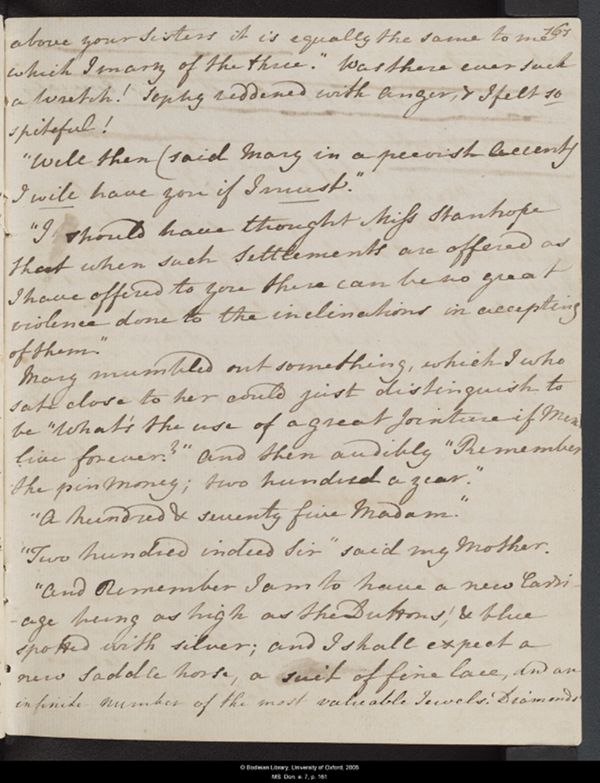 161
above your Sisters it is equally the same to me
which I marry of the three." Was there ever such
a Wretch! Sophy reddened with anger, & I felt so
spiteful!
"Well then (said Mary in a peevish Accent)
I will have you if I must."
"I should have thought Miss Stanhope
that when such Settlements are offered as
I have offered to you there can be no great
violence done to the inclinations in accepting
of them."
Mary mumbled out something, which I who
sate close to her could just distinguish to
be "What's the use of a great Jointure if Men
live forever?" And then audibly "Remember
the pinmoney; two hundred a year."
"A hundred & seventy five Madam."
"Two hundred indeed Sir" said my Mother.
"And Remember I am to have a new Carri-
-age hung as high as the Duttons', & blue
spotted with silver; and I shall expect a
new Saddle horse, a suit of fine lace, and an
infinite number of the most valuable Jewels. Diamonds
© Bodleian Library, University of Oxford, 2005
MS. Don. e. 7, p. 161